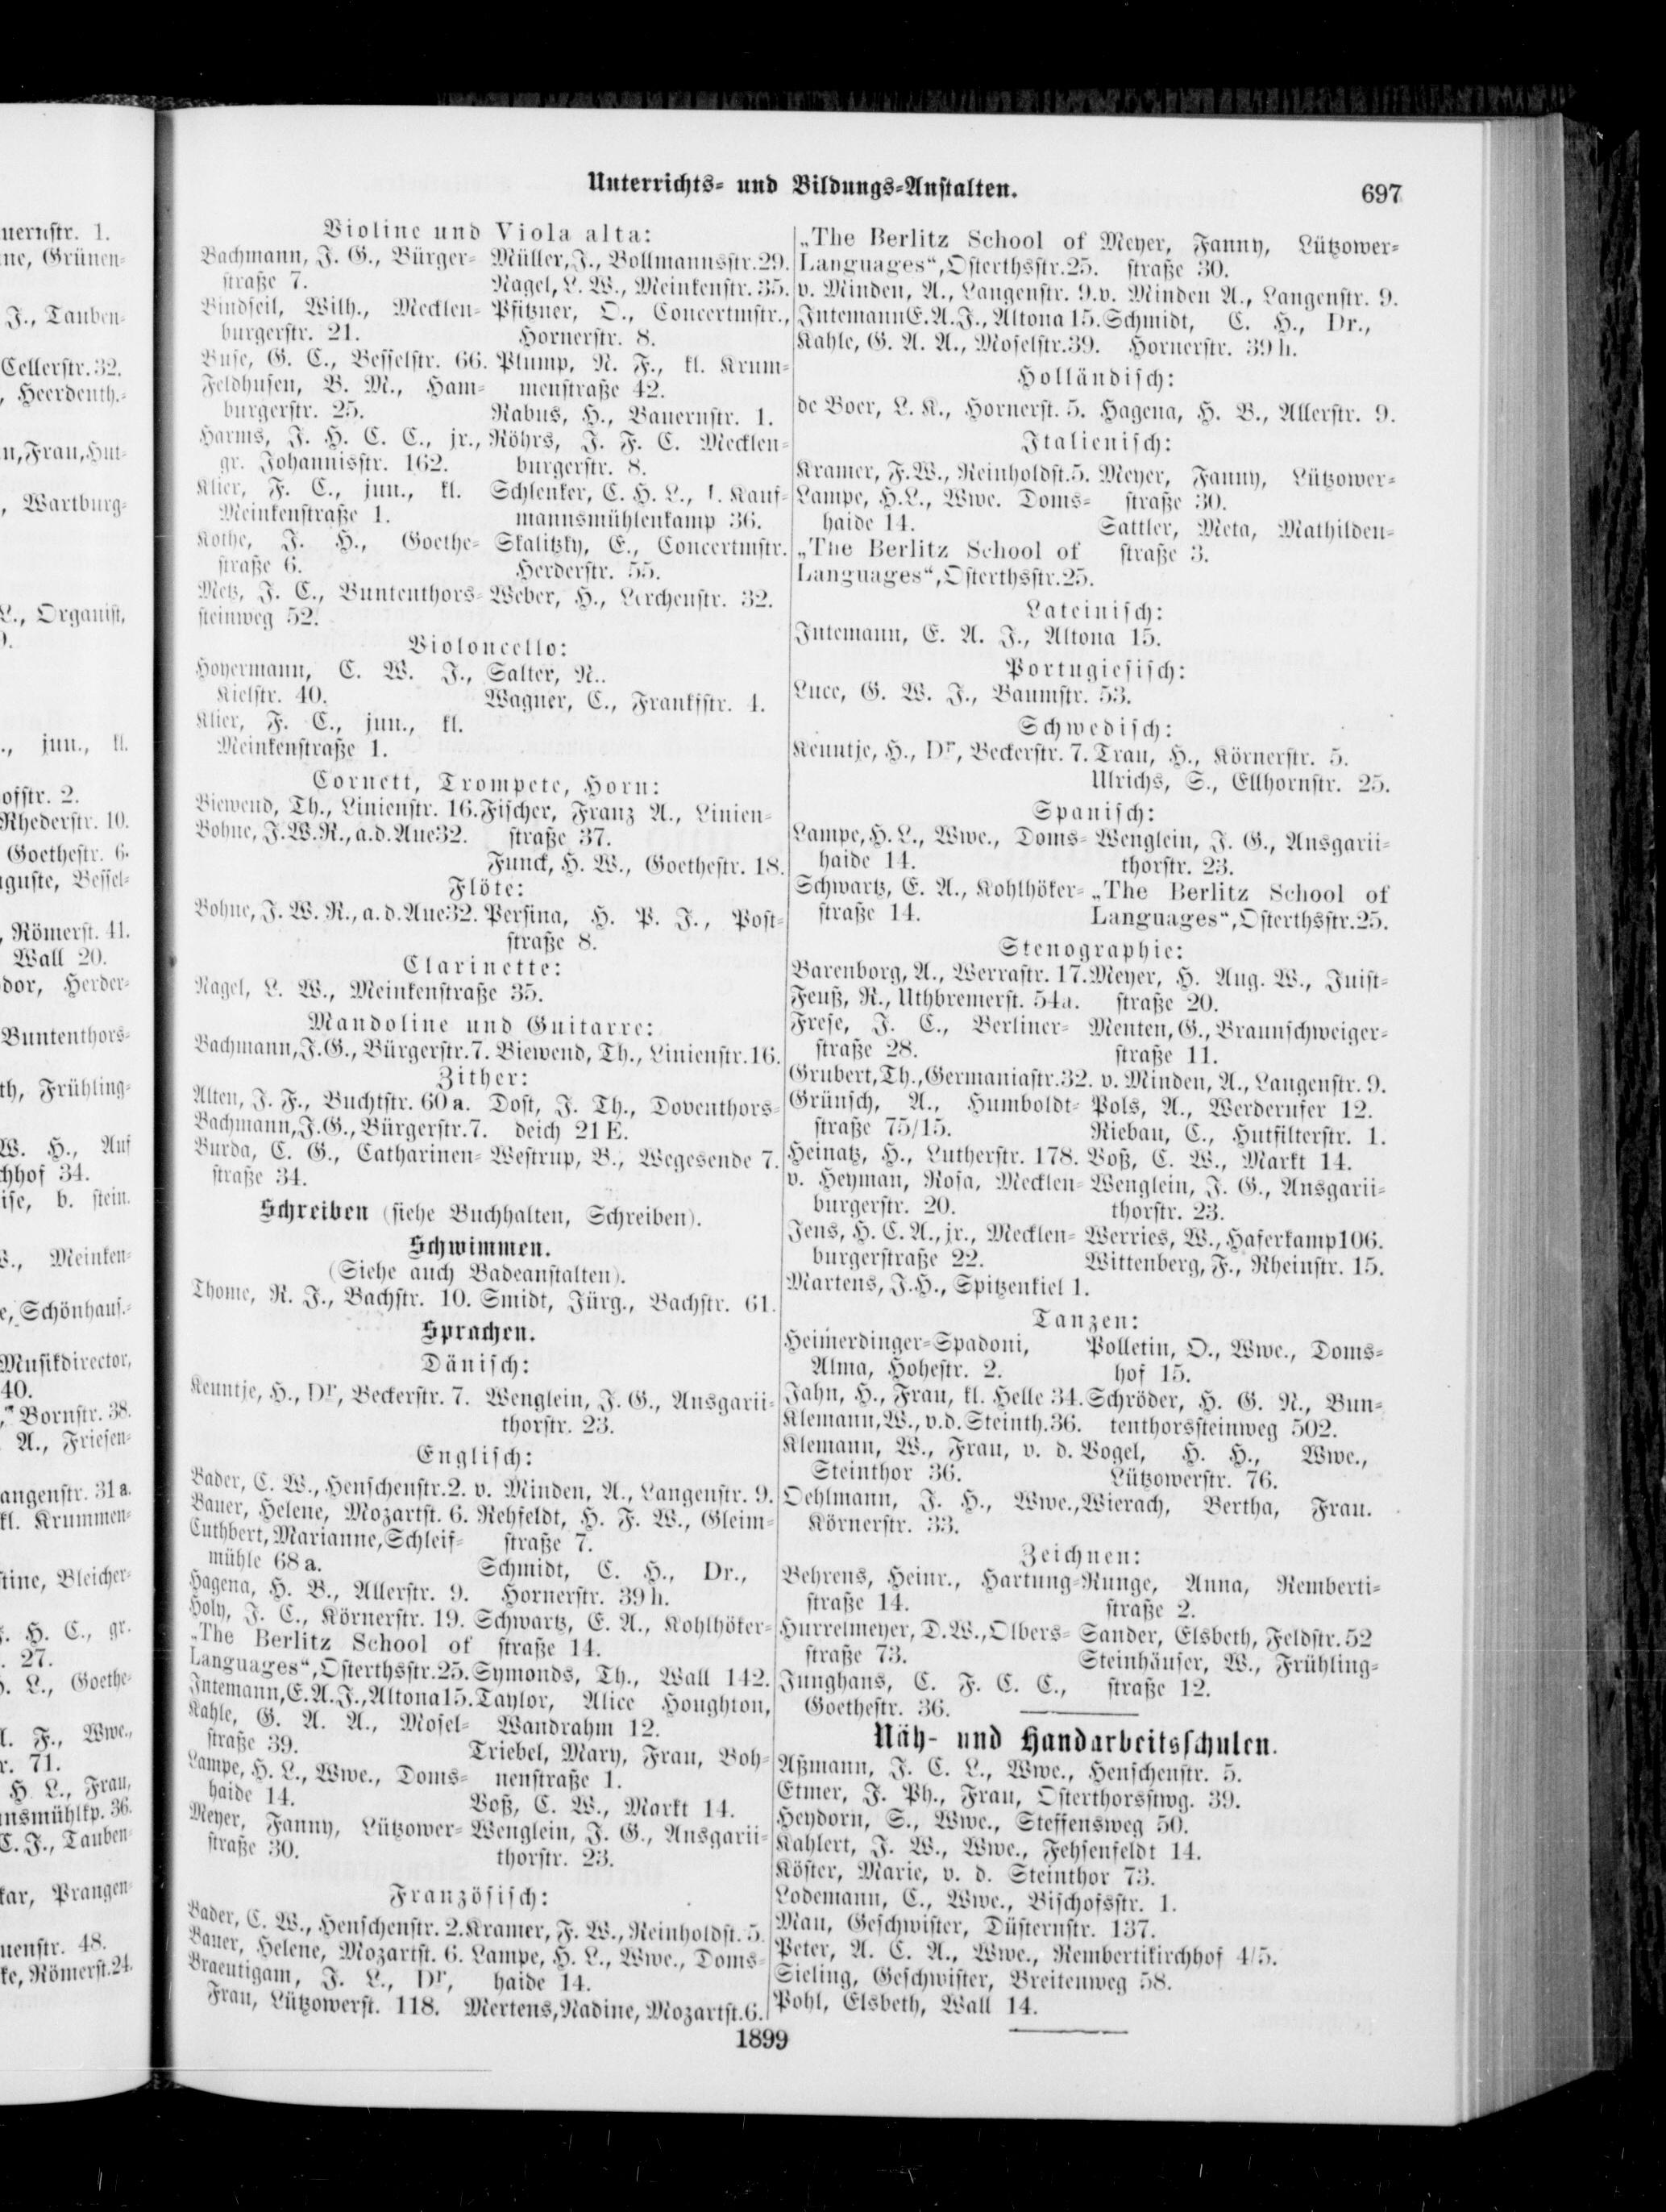 uernstr. 1.
ne, Grünen-
J., Tauben-
Cellerstr. 32.
, Heerdenth.-
n, Frau, Hut-
, Wartburg-
L., Organist,
., jun., kl.
ofstr. 2.
Rhederstr. 10.
Goethestr. 6.
guste, Bessel-
, Römerst. 41.
Wall 20.
dor, Herder-
Buntenthors-
th, Frühling-
W. H., Auf
chhof 34.
ise, b. stein.
., Meinken-
e, Schönhaus.-
Musikdirector,
40.
Bornstr. 38.
A., Friesen-
angenstr. 31a.
kl. Krummen-
tine, Bleicher-
H. C., gr.
27.
L., Goethe-
F., Wwe.,
r. 71.
H. L., Frau,
nsmühlkp. 36.
C. J., Tauben-
kar, Prangen-
nenstr. 48.
ke, Römerst. 24.
Unterrichts- und Bildungs-Anstalten.
697
Violine und Viola alta:
Bachmann, J. G., Bürger-
straße 7.
Bindseil, Wilh., Mecklen-
burgerstr. 21.
Buse, G. C., Besselstr. 66.
Feldhusen, B. M., Ham-
burgerstr. 25.
Harms, J. H. C. C., jr.,
gr. Johannisstr. 162.
Klier, F. C., jun., kl.
Meinkenstraße 1.
Kothe, J. H., Goethe-
straße 6.
Metz, J. C., Buntenthors-
steinweg 52.
Müller, J., Bollmannsstr. 29.
Nagel, L. W., Meinkenstr. 35.
Pfitzner, O., Concertmstr.,
Hornerstr. 8.
Plump, N. F., kl. Krum-
menstraße 42.
Rabus, H., Bauernstr. 1.
Röhrs, J. F. C. Mecklen-
burgerstr. 8.
Schlenker, C. H. L., l. Kauf-
mannsmühlenkamp 36.
Skalitzky, E., Concertmstr.
Herderstr. 55.
Weber, H., Lerchenstr. 32.
Violoncello:
Hoyermann, C. W. J.,
Kielstr. 40.
Klier, F. C., jun., kl.
Meinkenstraße 1.
Salter, N..
Wagner, C., Frankfstr. 4.
Cornett, Trompete, Horn:
Biewend, Th., Linienstr. 16.
Bohne, J. W. R., a. d. Aue 32.
Fischer, Franz A., Linien-
straße 37.
Funck, H. W., Goethestr. 18.
Flöte:
Bohne, J. W. R., a. d. Aue 32.
Persina, H. P. J., Post-
straße 8.
Clarinette:
Nagel, L. W., Meinkenstraße 35.
Mandoline und Guitarre:
Bachmann, J. G., Bürgerstr. 7.
Biewend, Th., Linienstr. 16.
Zither:
Alten, J. F., Buchtstr. 60a.
Bachmann, J. G., Bürgerstr. 7.
Burda, C. G., Catharinen-
straße 34.
Dost, J. Th., Doventhors-
deich 21E.
Westrup, B., Wegesende 7.
Schreiben (siehe Buchhalten, Schreiben).
Schwimmen.
(Siehe auch Badeanstalten).
Thome, R. J., Bachstr. 10.
Smidt, Jürg., Bachstr. 61.
Sprachen.
Dänisch:
Keuntje, H., Dr, Beckerstr. 7.
Wenglein, J. G., Ansgarii-
thorstr. 23.
Englisch:
Bader, C. W., Henschenstr. 2.
Bauer, Helene, Mozartst. 6.
Cuthbert, Marianne, Schleif-
mühle 68a.
Hagena, H. B., Allerstr. 9.
Holy, J. C., Körnerstr. 19.
„The Berlitz School of
Languages“, Osterthsstr. 25.
Intemann, E. A. J., Altona 15.
Kahle, G. A. A., Mosel-
straße 39.
Lampe, H. L., Wwe., Doms-
haide 14.
Meyer, Fanny, Lützower-
straße 30.
v. Minden, A., Langenstr. 9.
Rehfeldt, H. F. W., Gleim-
straße 7.
Schmidt, C. H., Dr.,
Hornerstr. 39h.
Schwartz, E. A., Kohlhöker-
straße 14.
Symonds, Th., Wall 142.
Taylor, Alice Houghton,
Wandrahm 12.
Triebel, Mary, Frau, Boh-
nenstraße 1.
Voß, C. W., Markt 14.
Wenglein, J. G., Ansgarii-
thorstr. 23.
Französisch:
Bader, C. W., Henschenstr. 2.
Bauer, Helene, Mozartst. 6.
Braeutigam, J. L., Dr,
Frau, Lützowerst. 118.
Kramer, F. W., Reinholdst. 5.
Lampe, H. L., Wwe., Doms-
haide 14.
Mertens, Nadine, Mozartst. 6.
„The Berlitz School of
Languages“, Osterthsstr. 25.
v. Minden, A., Langenstr. 9.
Intemann E. A. J., Altona 15.
Kahle, G. A. A., Moselstr. 39.
Meyer, Fanny, Lützower-
straße 30.
v. Minden A., Langenstr. 9.
Schmidt, C. H., Dr.,
Hornerstr. 39h.
Holländisch:
de Boer, L. K., Hornerst. 5.
Hagena, H. B., Allerstr. 9.
Italienisch:
Kramer, F. W., Reinholdst. 5.
Lampe, H. L., Wwe. Doms-
haide 14.
„The Berlitz School of
Languages“, Osterthsstr. 25.
Meyer, Fanny, Lützower-
straße 30.
Sattler, Meta, Mathilden-
straße 3.
Lateinisch:
Intemann, E. A. J., Altona 15.
Portugiesisch:
Luce, G. W. J., Baumstr. 53.
Schwedisch:
Keuntje, H., Dr, Beckerstr. 7.
Trau, H., Körnerstr. 5.
Ulrichs, S., Ellhornstr. 25.
Spanisch:
Lampe, H. L., Wwe., Doms-
haide 14.
Schwartz, E. A., Kohlhöker-
straße 14.
Wenglein, J. G., Ansgarii-
thorstr. 23.
„The Berlitz School of
Languages“, Osterthsstr. 25.
Stenographie:
Barenborg, A., Werrastr. 17.
Feuß, R., Uthbremerst. 54a.
Frese, J. C., Berliner-
straße 28.
Grubert, Th., Germaniastr. 32.
Grünsch, A., Humboldt-
straße 75/15.
Heinatz, H., Lutherstr. 178.
v. Heyman, Rosa, Mecklen-
burgerstr. 20.
Jens, H. C. A., jr., Mecklen-
burgerstraße 22.
Martens, J. H., Spitzenkiel 1.
Meyer, H. Aug. W., Juist-
straße 20.
Menten, G., Braunschweiger-
straße 11.
v. Minden, A., Langenstr. 9.
Pols, A., Werderufer 12.
Riebau, C., Hutfilterstr. 1.
Voß, C. W., Markt 14.
Wenglein, J. G., Ansgarii-
thorstr. 23.
Werries, W., Haferkamp 106.
Wittenberg, F., Rheinstr. 15.
Tanzen:
Heimerdinger-Spadoni,
Alma, Hohestr. 2.
Jahn, H., Frau, kl. Helle 34.
Klemann, W., v. d. Steinth. 36.
Klemann, W., Frau, v. d.
Steinthor 36.
Oehlmann, J. H., Wwe.,
Körnerstr. 33.
Polletin, O., Wwe., Doms-
hof 15.
Schröder, H. G. N., Bun-
tenthorssteinweg 502.
Vogel, H. H., Wwe.,
Lützowerstr. 76.
Wierach, Bertha, Frau.
Zeichnen:
Behrens, Heinr., Hartung-
straße 14.
Hurrelmeyer, D. W., Olbers-
straße 73.
Junghans, C. F. C. C.,
Goethestr. 36.
Runge, Anna, Remberti-
straße 2.
Sander, Elsbeth, Feldstr. 52
Steinhäuser, W., Frühling-
straße 12.
Näh- und Handarbeitsschulen.
Aßmann, J. C. L., Wwe., Henschenstr. 5.
Etmer, J. Ph., Frau, Osterthorsstwg. 39.
Heydorn, S., Wwe., Steffensweg 50.
Kahlert, J. W., Wwe., Fehsenfeldt 14.
Köster, Marie, v. d. Steinthor 73.
Lodemann, C., Wwe., Bischofsstr. 1.
Mau, Geschwister, Düsternstr. 137.
Peter, A. C. A., Wwe., Rembertikirchhof 4/5.
Sieling, Geschwister, Breitenweg 58.
Pohl, Elsbeth, Wall 14.
1899